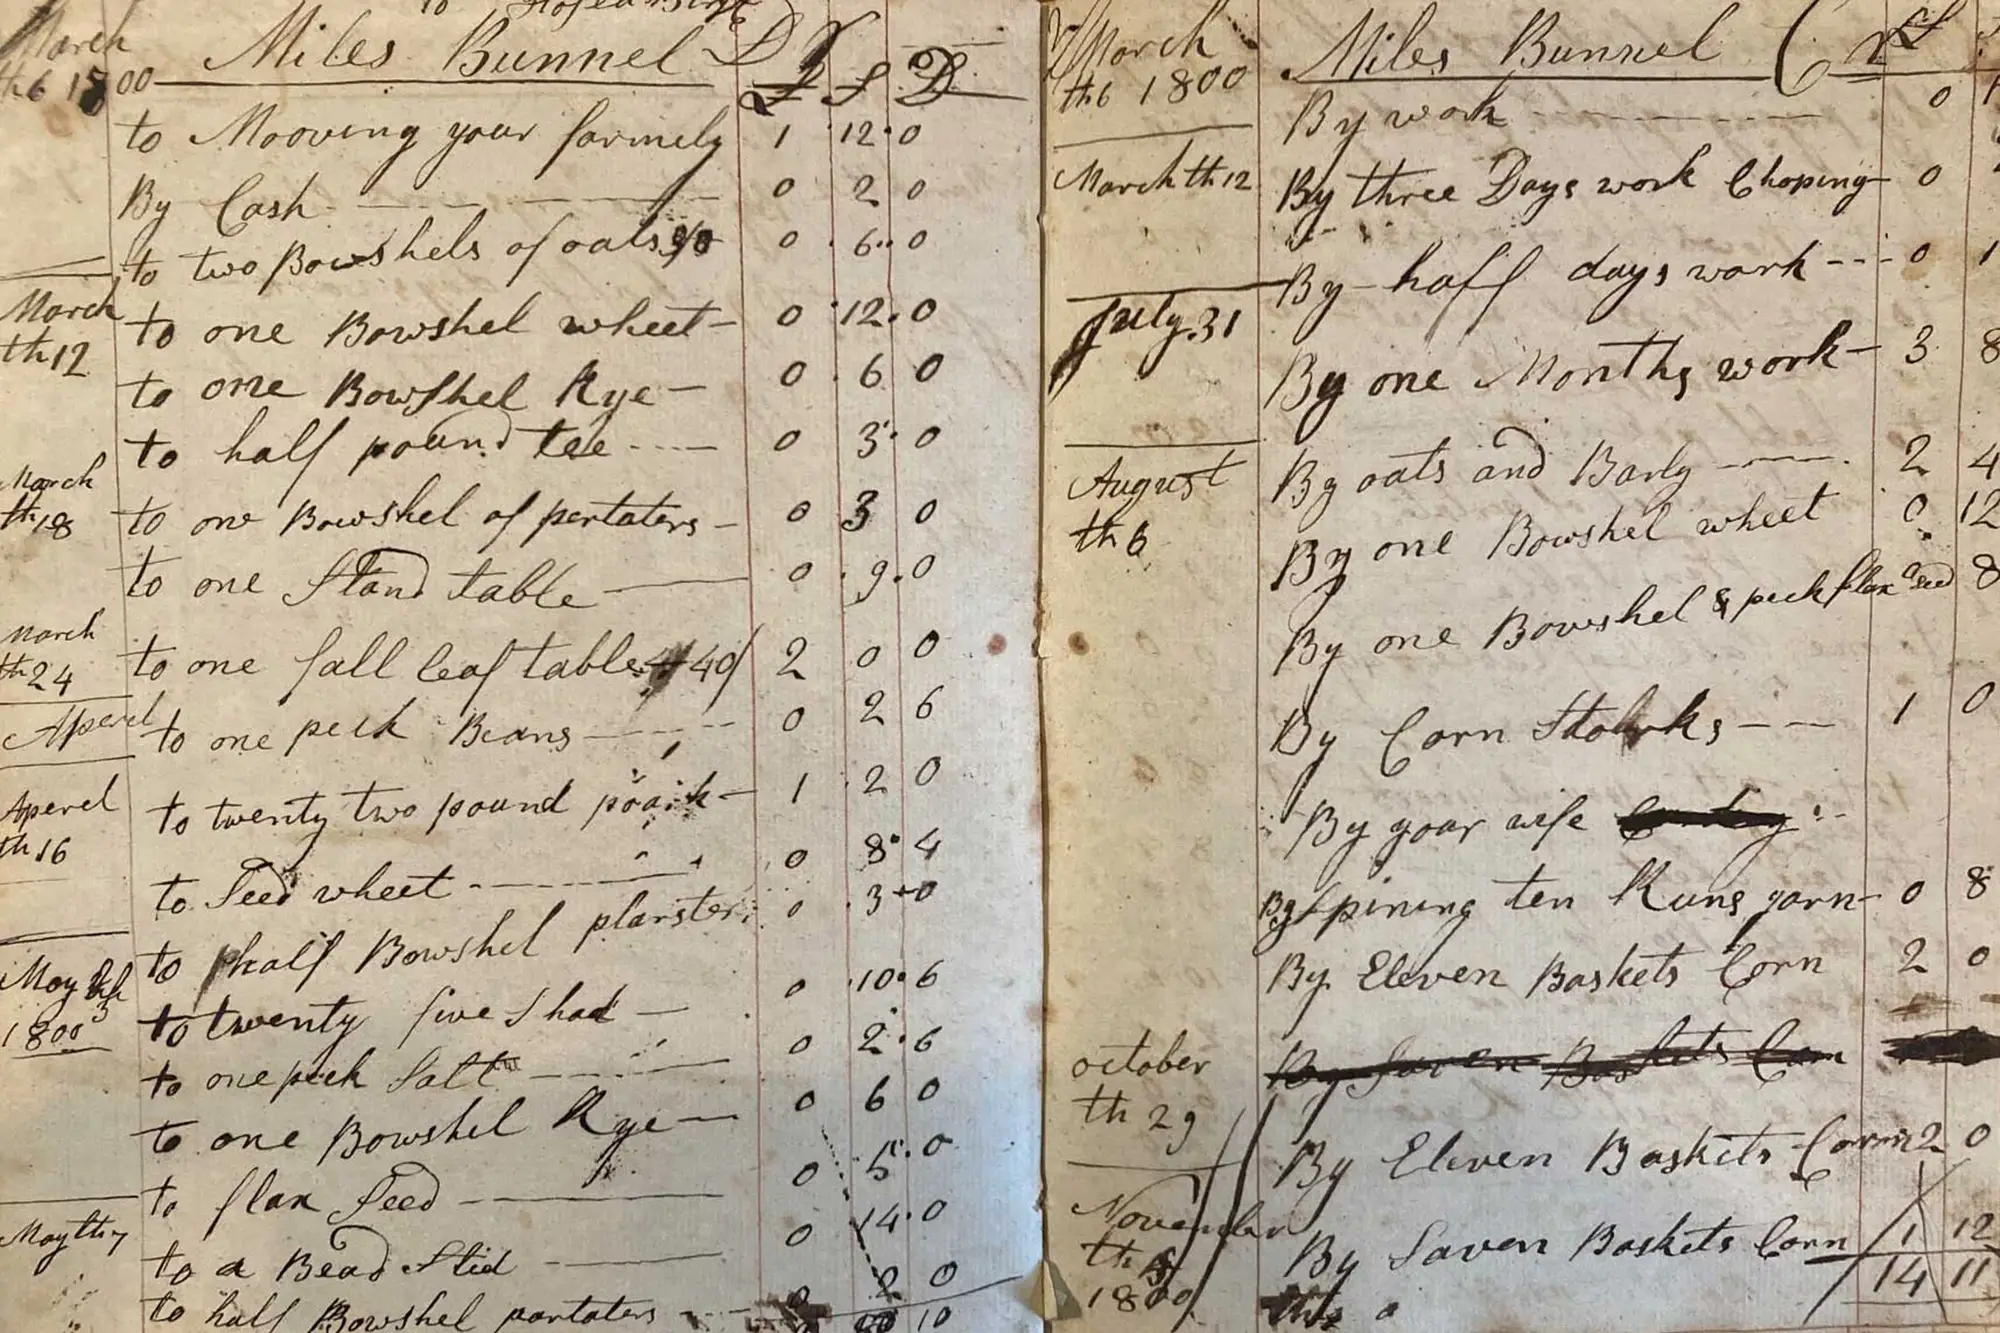 March
th6 1800
Miles Bunnel Dr
£ S D
to Mooving your farmely 1 12 0
By Cash 0 2 0
to two Bowshels of oats 0 6 0
March
th 12
to one Bowshel wheet 0 12 0
to one Bowshel Rye 0 6 0
to half pound tee 0 3 0
March
th 18
to one Bowshel of pertaters 0 3 0
to one Stand table 0 9 0
March
th 24
to one fall leaf table 40/ 2 0 0
Aperel
to one peck Beans 0 2 6
Aperel
th 16
to twenty two pound poark 1 2 0
to Seed wheet 0 8 4
to half Bowshel plarster 0 3 0
May
1800
to twenty five Shad 0 10 6
to one peck Salt 0 2 6
to one Bowshel Rye 0 6 0
to flax Seed 0 5 0
May th 7
to a Bead Stid 0 14 0
to half Bowshel partaters 0 2 0
10
March
th6 1800
Miles Bunnel Cr £
By work 0
March th 12
By three Days work Choping 0
By half days work 0 1
July 31
By one Months work 3 8
August
th 6
By oats and Barly 2 4
By one Bowshel wheet 0 12
By one Bowshel & peck flax seed 0 8
By Corn Stolrks 1 0
By your wife
By Spining ten Runs yarn 0 8
By Eleven Baskets Corn 2 0
By Saven Baskets Corn
October
th 29
By Eleven Baskets Corn 2 0
November
th
1800
By Saven Baskets Corn 1 12
14 11